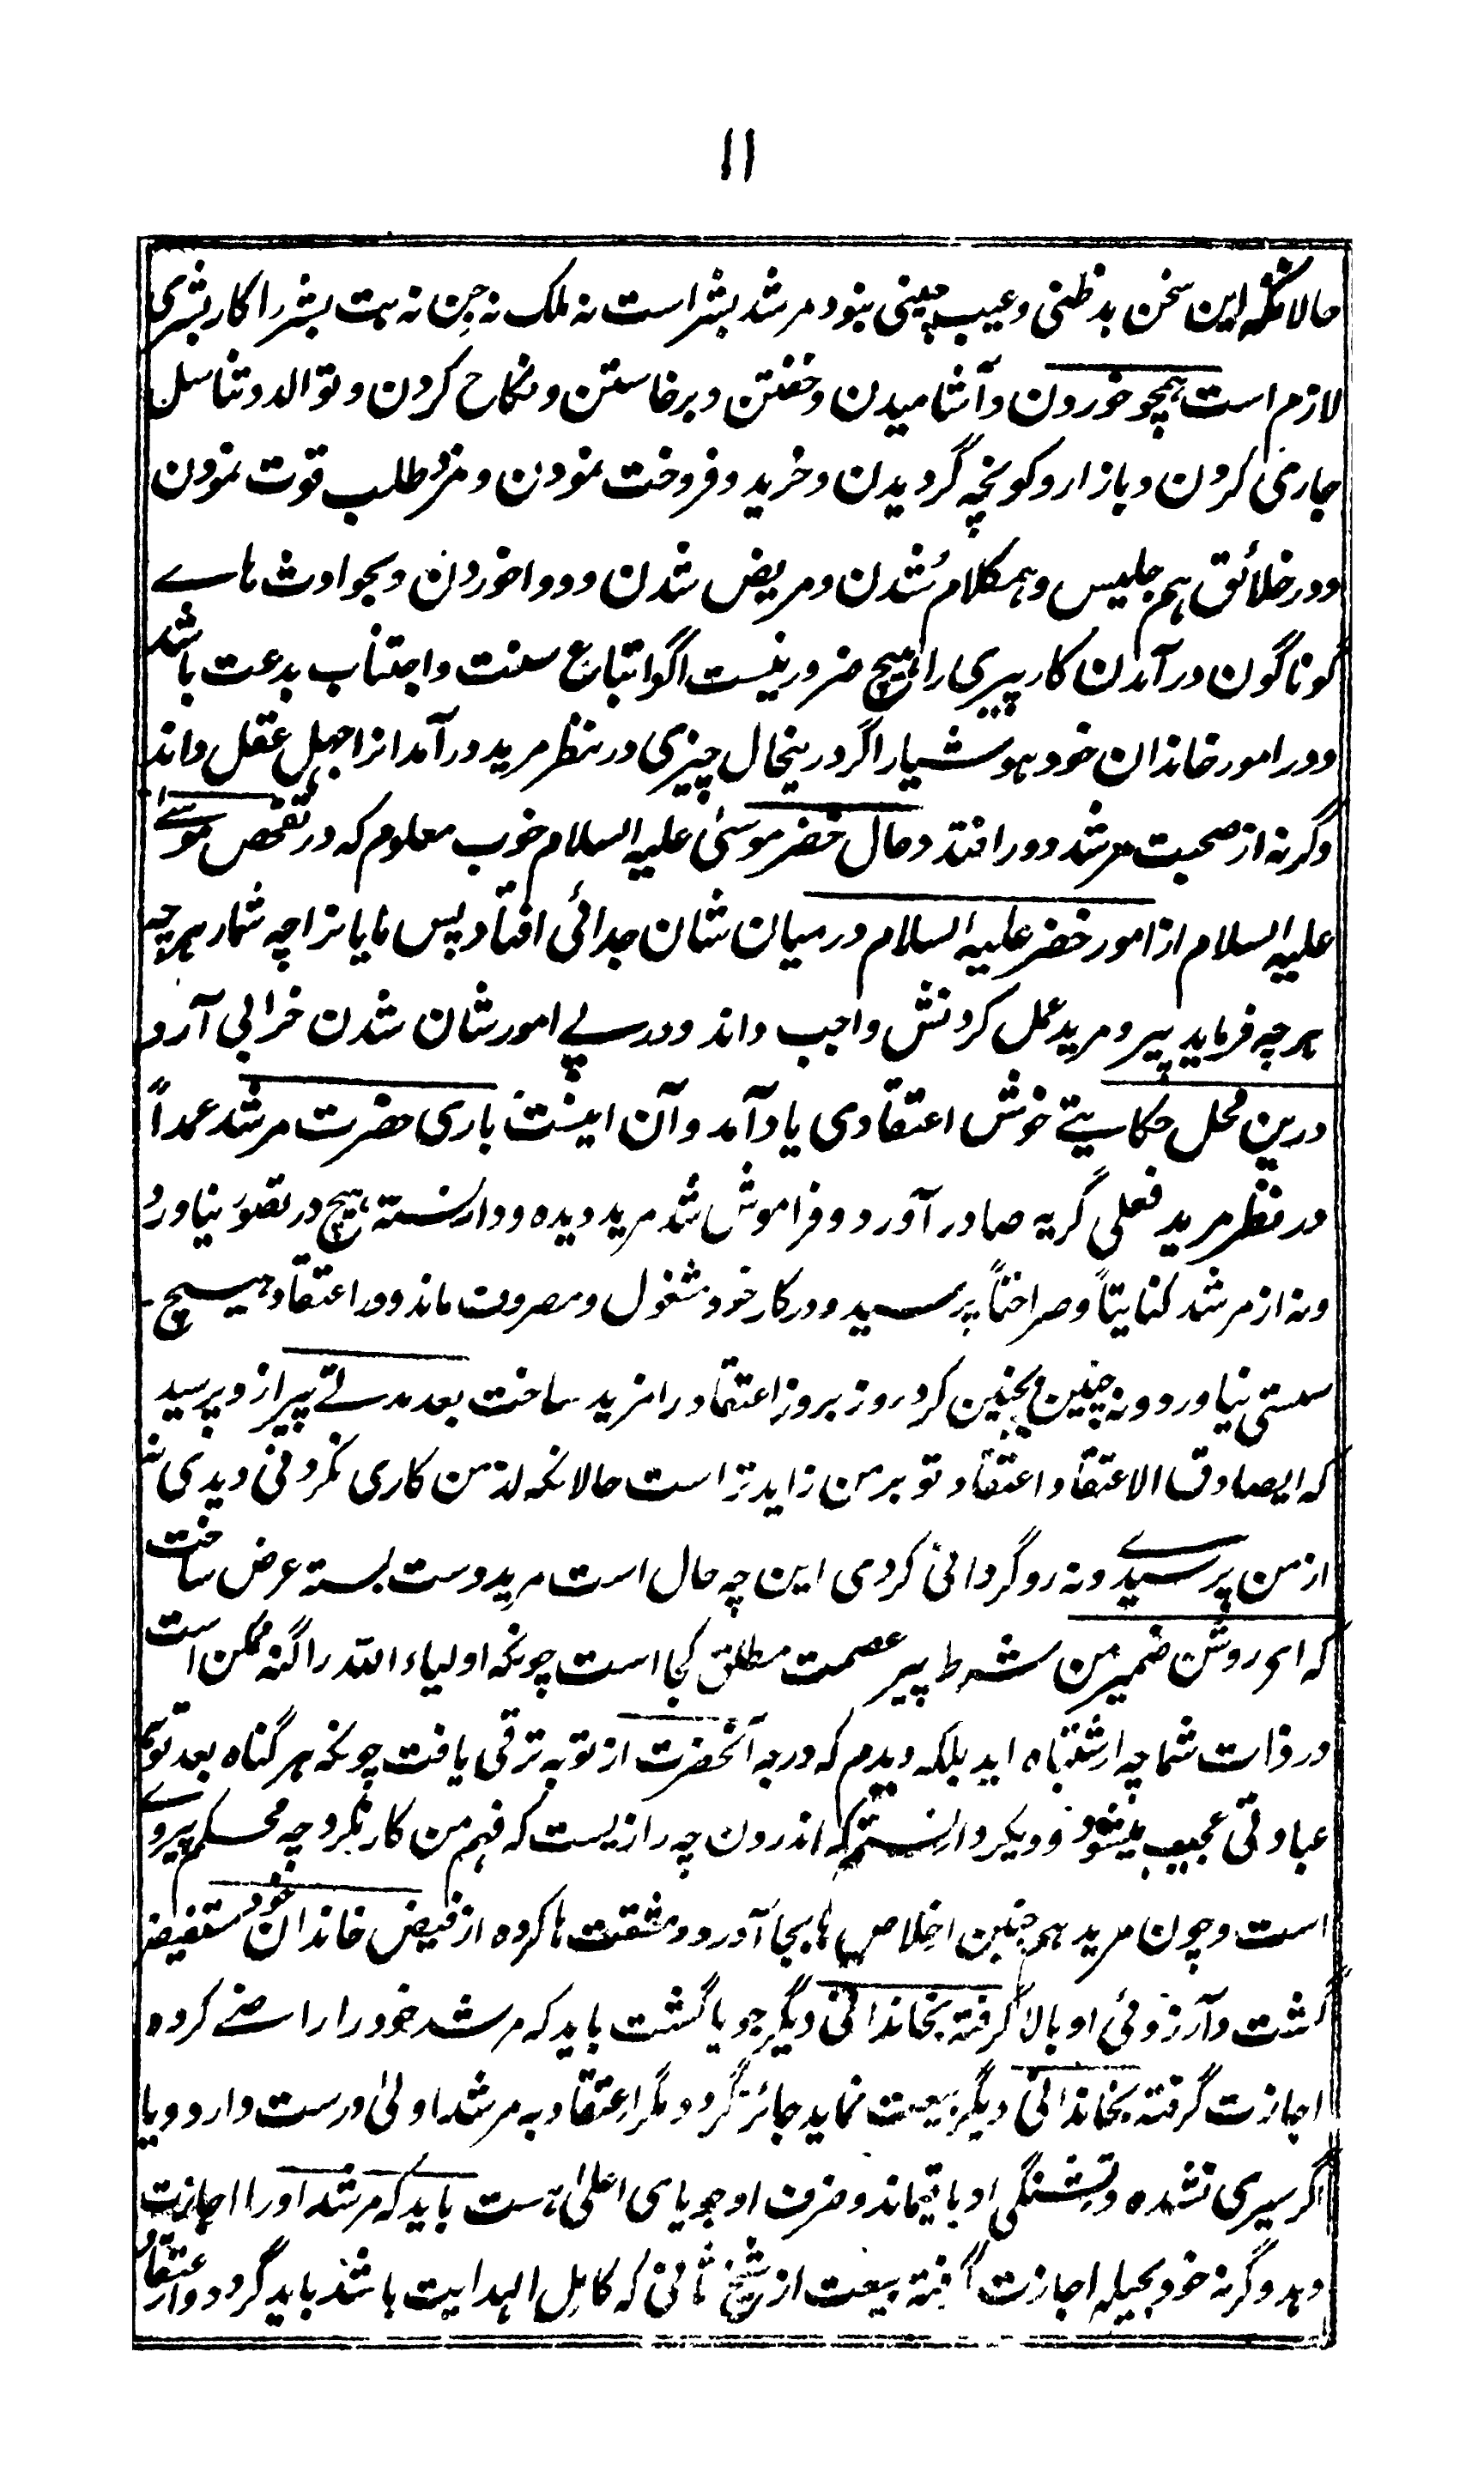 ۱۱
حالانکه این سخن بدظنی و عیب چینی نبود مرشد بشر است نه ملک نه جن نه بت بشر را کار بشری
لازم است همچو خوردن و آشامیدن و خفتن و برخاستن و نکاح کردن و توالد و تناسل
جاری کردن و بازار و کوچه گردیدن و خرید و فروخت نمودن و مزد طلب قوت نمودن
و در خلائق هم جلیس و همکلام شدن و مریض شدن و دوا خوردن و بحوادث هاے
گوناگون در آمدن کار پیری را هیچ ضرر نیست اگر اتباع سنت و اجتناب بدعت باشد
و در امور خاندان خود هوشیار اگر درینحال چیزی در نظر مرید در آمد از جهل عقل داند
وگرنه از صحبت مرشد دور افتد و حال خضر موسیٰ علیه السلام خوب معلوم که در تفحص موسے
علیه السلام از امور خضر علیه السلام درمیان شان جدائی افتاد پس مایانرا چه شمار هر چه
هر چه فرماید پیر و مرید عمل کردنش واجب داند و درپے امور شان شدن خرابی آرد
درین محل حکایتے خوش اعتقادی یاد آمد و آن اینست باری حضرت مرشد عمداً
در نظر مرید فعلی گریه صادر آورد و فراموش شد مرید دیده و دانسته هیچ در تصور نیاورد
و نه از مرشد کنایتاً و صراحتاً پرسید و در کار خود مشغول و مصروف ماند و در اعتقاد هیچ
سستی نیاورد و نه چنین و چنین کرد روز بروز اعتقاد را مزید ساخت بعد مدتے پیر ازو پرسید
که ایصادق الاعتقاد اعتقاد تو بر من زاید تر است حالانکه از من کاری نکردنی دیدی نه
از من پرسیدے و نه روگردانی کردی این چه حال است مرید دست بسته عرض ساخت
که ای روشن ضمیر من شرط پیر عصمت مطلق کجا است چونکه اولیاء الله را گنه ممکن است
در ذات شما چه اشتباه اید بلکه دیدم که درجه آنحضرت از توبه ترقی یافت چونکه هر گناه بعد توبه
عبادتی عجیب میشود و دیگر دانستم که اندرون چه رازیست که فهم من کار نکرد چه محکم پیروے
است و چون مرید هم چنین اخلاص ها بجا آورد و مشقت ها کرده از فیض خاندان خود مستفیض
گشت و آرزوئی او بالا گرفته بخاندانی دیگر جویا گشت باید که مرشد خود را راضے کرده
اجازت گرفته بخاندانی دیگر بیعت نماید جائز گردد مگر اعتقاد به مرشد اولیٰ درست دارد و یا
اگر سیری نشده و تشنگی او باقیماند و ضرف او جویای اعلیٰ هست باید که مرشد او را اجازت
دهد وگرنه خود بحیله اجازت گرفته بیعت از شیخ ثانی که کامل الهدایت باشد باید گردد و اعتقاد